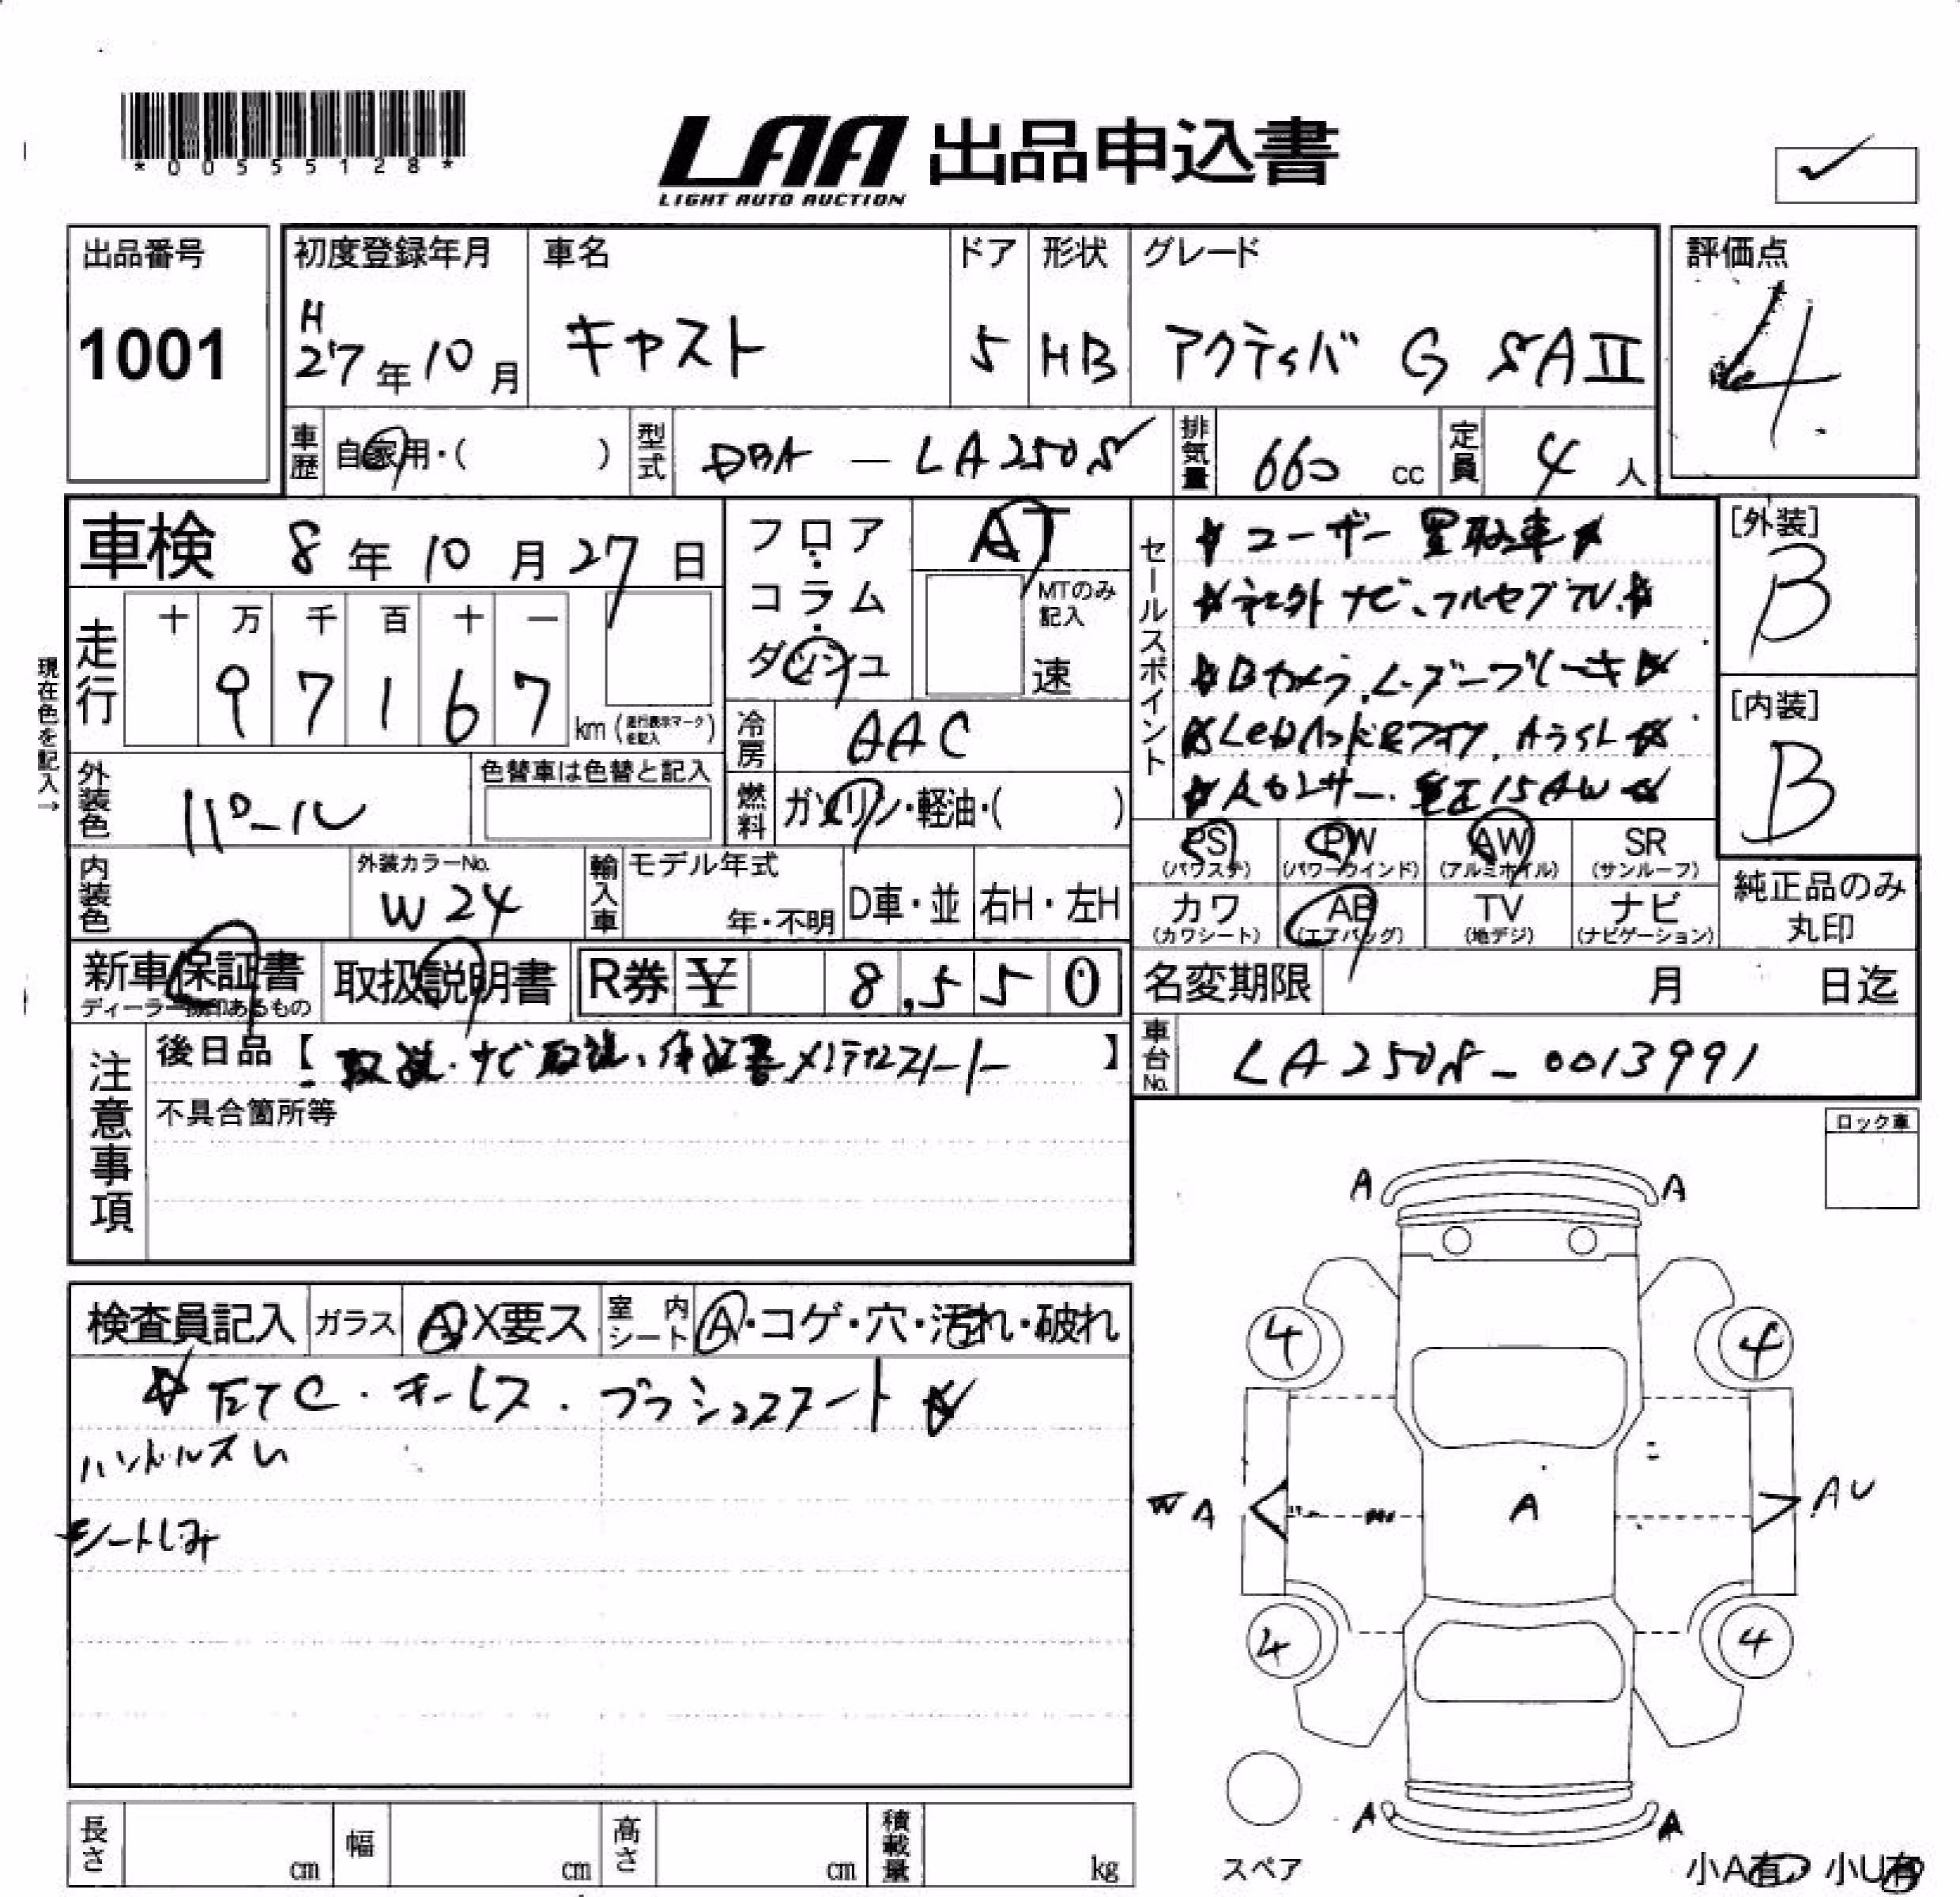 *00555128*
LAA 出品申込書
LIGHT AUTO AUCTION
出品番号
1001
初度登録年月
H
27年10月
車名
キャスト
ドア
5
形状
HB
グレード
アクティバ G SAⅡ
評価点
4
車歴
自家用・( )
型式
DBA — LA250S
排気量
660 cc
定員
4 人
車検 8年10月27日
現在色を記入→
走行
十 万 千 百 十 一
9 7 1 6 7 km
(走行表示マーク 記入)
外装色
パール
色替車は色替と記入
内装色
外装カラーNo.
W24
輸入車
モデル年式
年・不明
D車・並
右H・左H
フロア
・
コラム
・
ダッシュ
AT
MTのみ記入
速
冷房
AAC
燃料
ガソリン・軽油・( )
セールスポイント
☆ユーザー買取車☆
☆社外ナビ、フルセグTV.☆
☆Bカメラ,レーダーブレーキ☆
☆LEDヘッド&フォグ,
純正15AW☆
[外装]
B
[内装]
B
PS
(パワステ)
PW
(パワーウインド)
AW
(アルミホイル)
SR
(サンルーフ)
カワ
(カワシート)
AB
(エアバッグ)
TV
(地デジ)
ナビ
(ナビゲーション)
純正品のみ
丸印
新車保証書
ディーラー捺印あるもの
取扱説明書
R券 ¥ 8,550
名変期限 月 日迄
車台No.
LA250S-0013991
注意事項
後日品【取説・ナビ取説、保証書 】
不具合箇所等
ロック車
検査員記入
ガラス
A X要ス
室内シート
A・コゲ・穴・汚れ・破れ
☆ETC.キーレス.プッシュスタート☆
ハンドルスレ
シートしみ
A A
4 4
A A AU
4 4
A A
スペア
小A有 小U有
長さ cm
幅 cm
高さ cm
積載量 kg